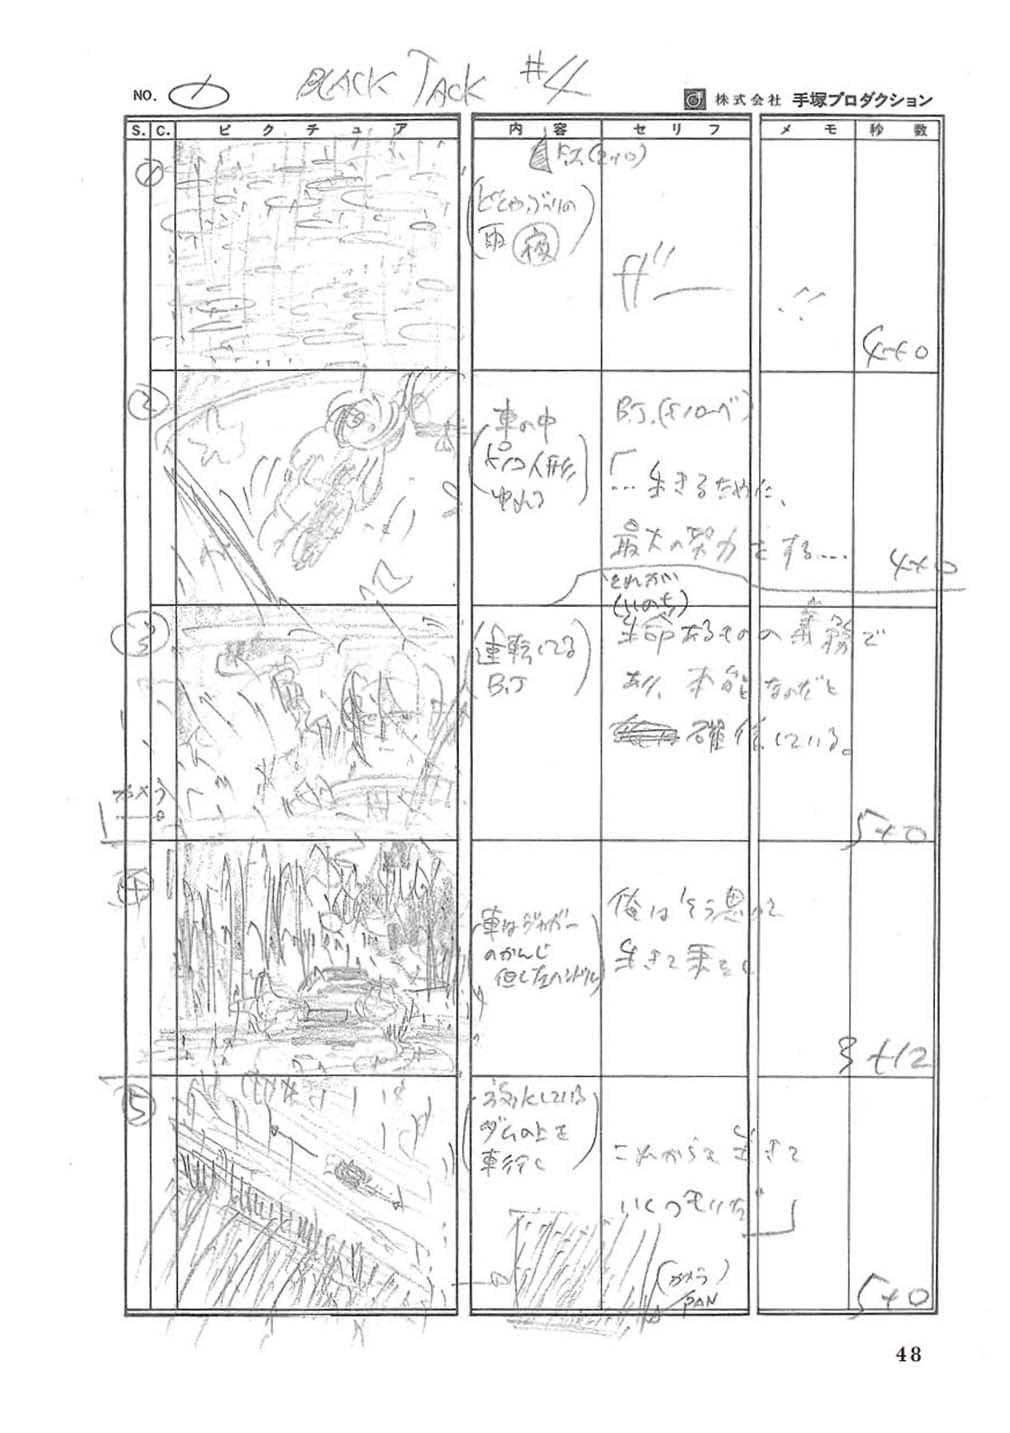 BLACK JACK #4
NO. 1
株式会社 手塚プロダクション
S. C. ピクチュア 内容 セリフ メモ 秒数
①
F.I.(2+0)
(どしゃぶりの
雨 夜)
ザー
4+0
②
車の中
(ピノコ人形
ゆれる)
B.J.(モノローグ)
「…生きるために、
最大の努力をする….
4+0
それが
(いのち)
③
(運転してる
B.J)
生命あるものの義務で
あり、本能なのだと
確信している。
カメラ
5+0
④
(車はジャガー
のかんじ
但し左ハンドル)
俺はそう思って
生きて来たし
3+12
⑤
(放水している
ダムの上を
車行く)
これからも生きて
いくつもりだ」
(カメラ)
PAN
5+0
48